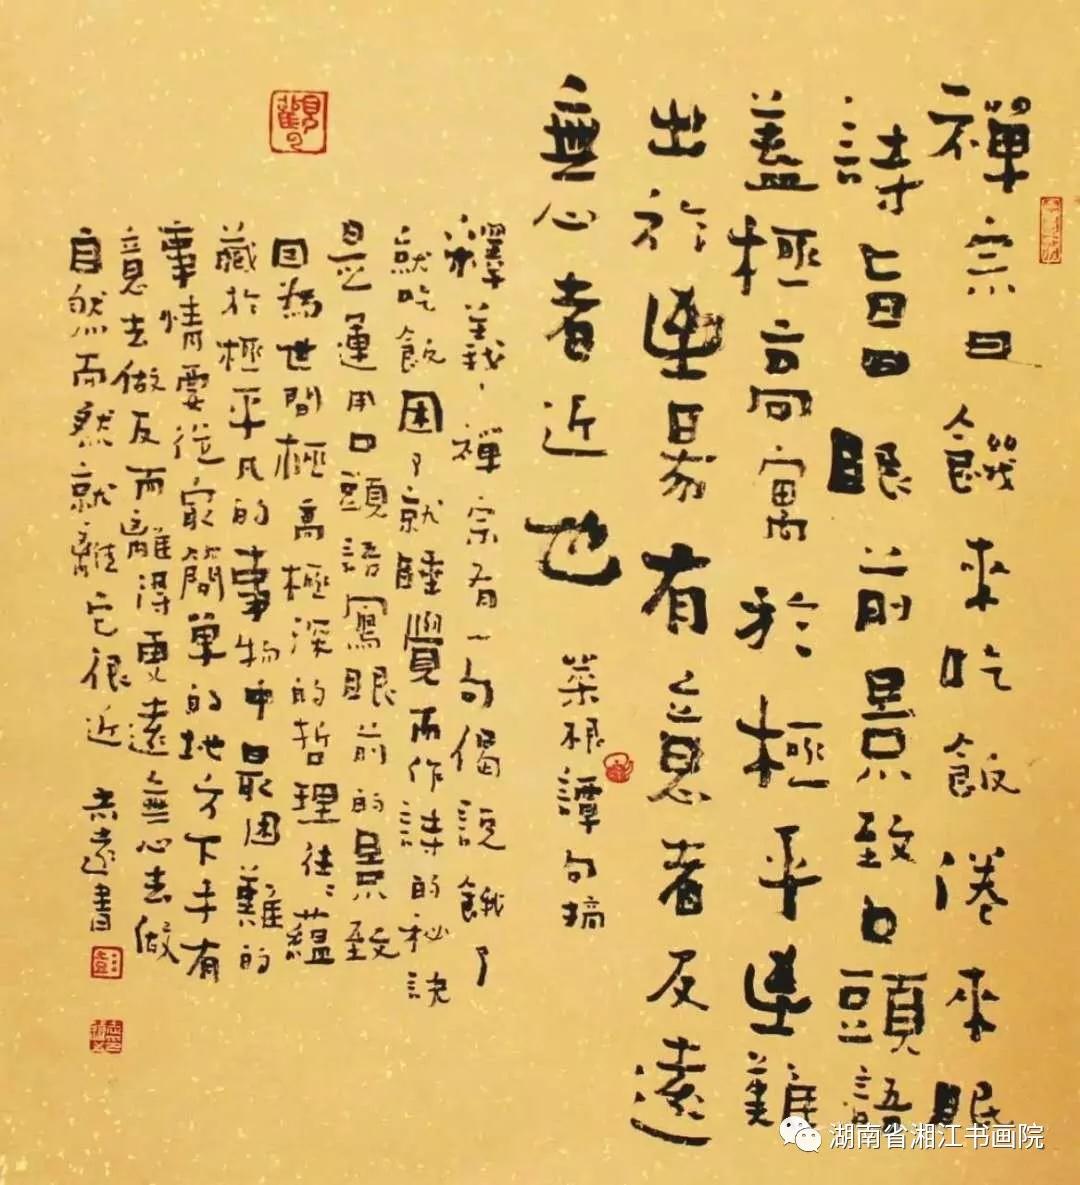 禪宗曰饑來吃飯倦來眠
詩旨曰眼前景致口頭語
蓋極高寓於極平至難
出於至易有意者反遠
無心者近也
菜根譚句摘
釋義、禪宗有一句偈說餓了
就吃飯困了就睡覺而作詩的秘訣
是運用口頭語寫眼前的景致
因為世間極高極深的哲理往往蘊
藏於極平凡的事物中最困難的
事情要從最簡單的地方下手有
意去做反而離得更遠無心去做
自然而然就離它很近 志遠書
湖南省湘江书画院